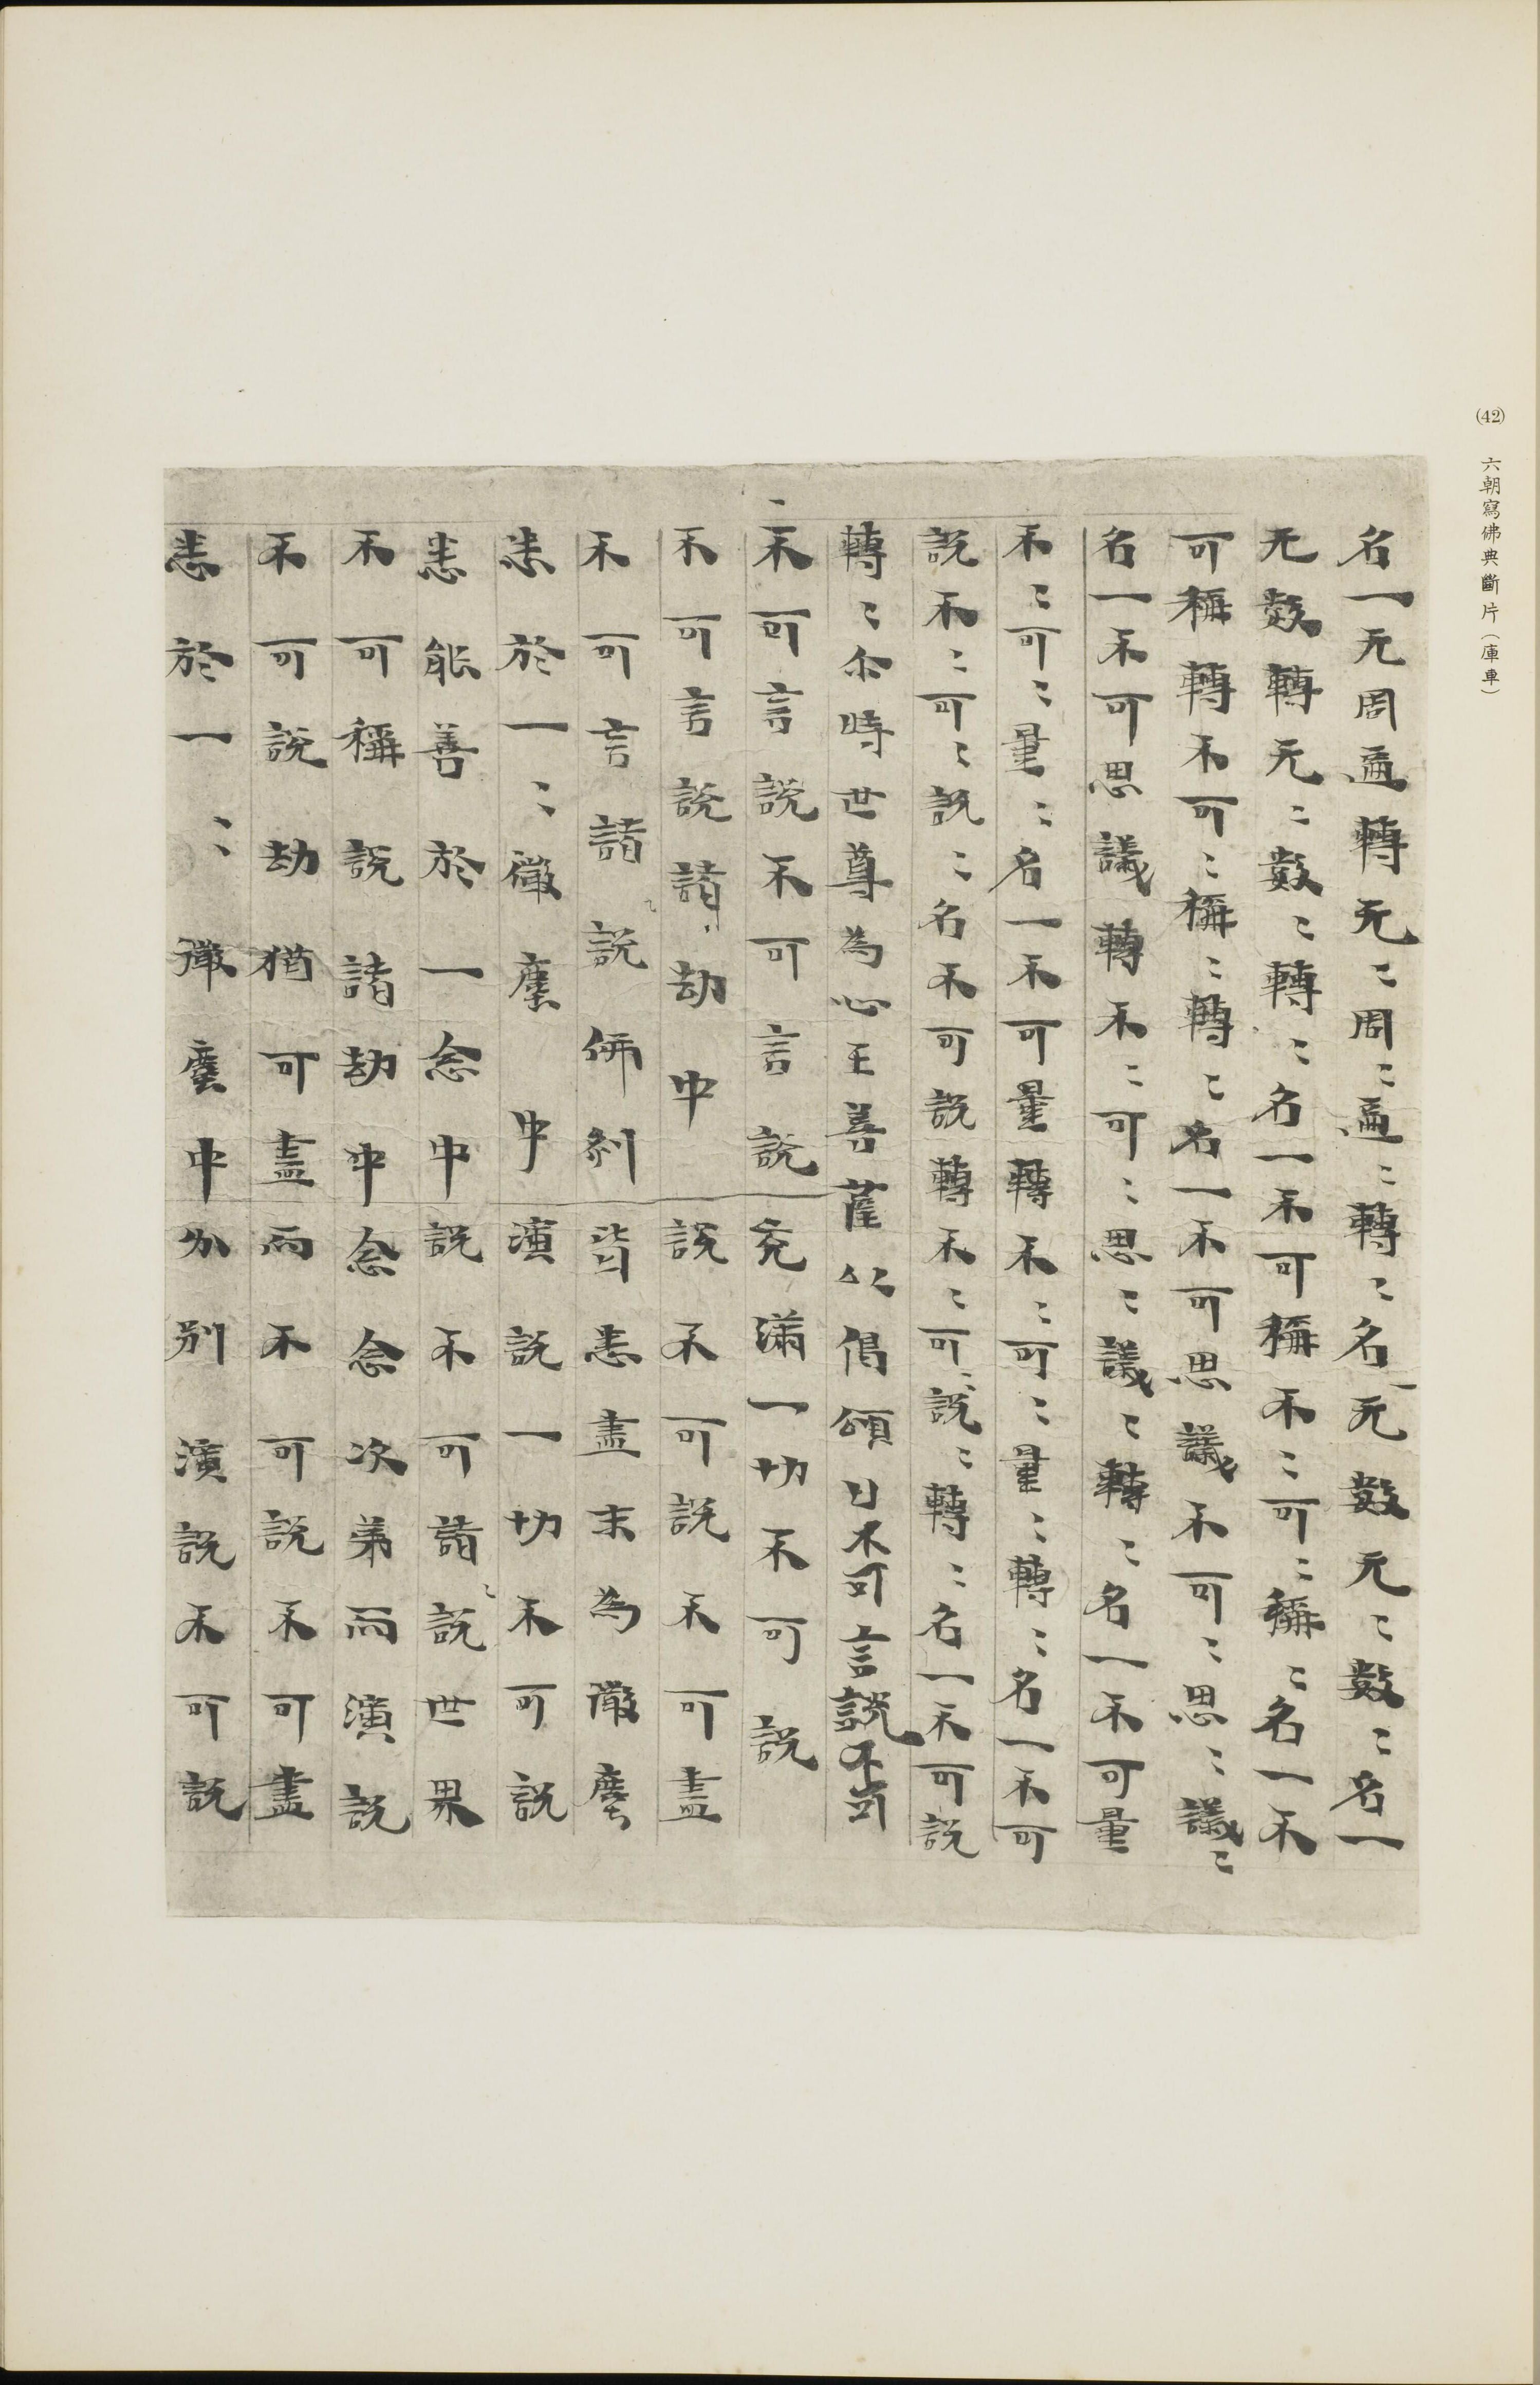 (42) 六朝寫佛典斷片（庫車）
名一无周遍轉无〻周〻遍〻轉〻名一无數无〻數〻名一
无數轉无〻數〻轉〻名一不可稱不〻可〻稱〻名一不
可稱轉不可〻稱〻轉〻名一不可思議不可〻思〻議〻
名一不可思議轉不〻可〻思〻議〻轉〻名一不可量
不〻可〻量〻名一不可量轉不〻可〻量〻轉〻名一不可
說不〻可〻說〻名不可說轉不〻可〻說〻轉〻名一不可說
轉〻尒時世尊為心王菩薩以偈頌曰不可言說不可
〻不可言說不可言說充滿一切不可說
不可言說諸〻劫中說不可說不可盡
不可言諸〻說佛刹皆悉盡末為微塵
悉於一〻微塵中演說一切不可說
悉能善於一念中說不可諸〻說世界
不可稱說諸劫中念念次第而演說
不可說劫猶可盡而不可說不可盡
悉於一〻微塵中分別演說不可說